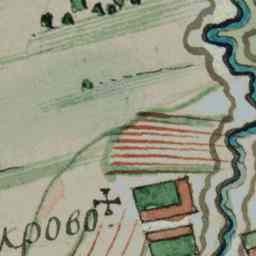 крово